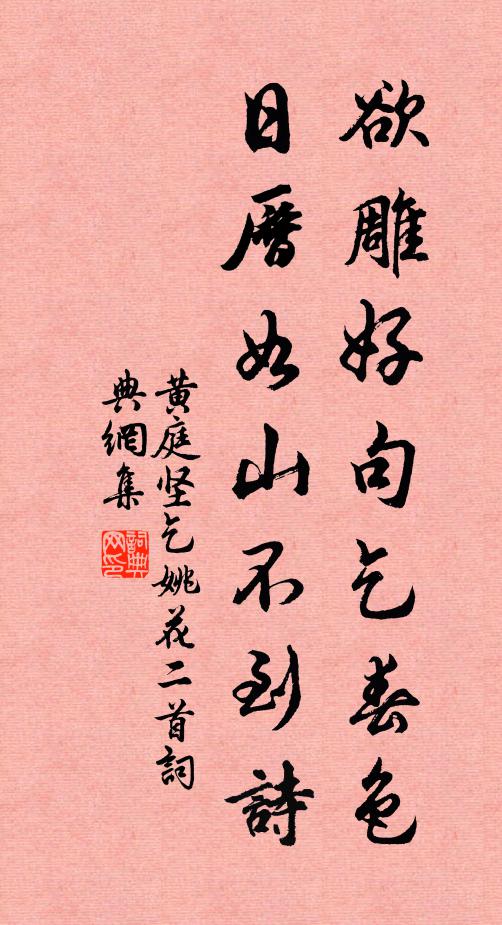 欲雕好句乞春色
日曆如山不到詩
黄庭坚乞姚花二首詞
典網集
詞典
网印